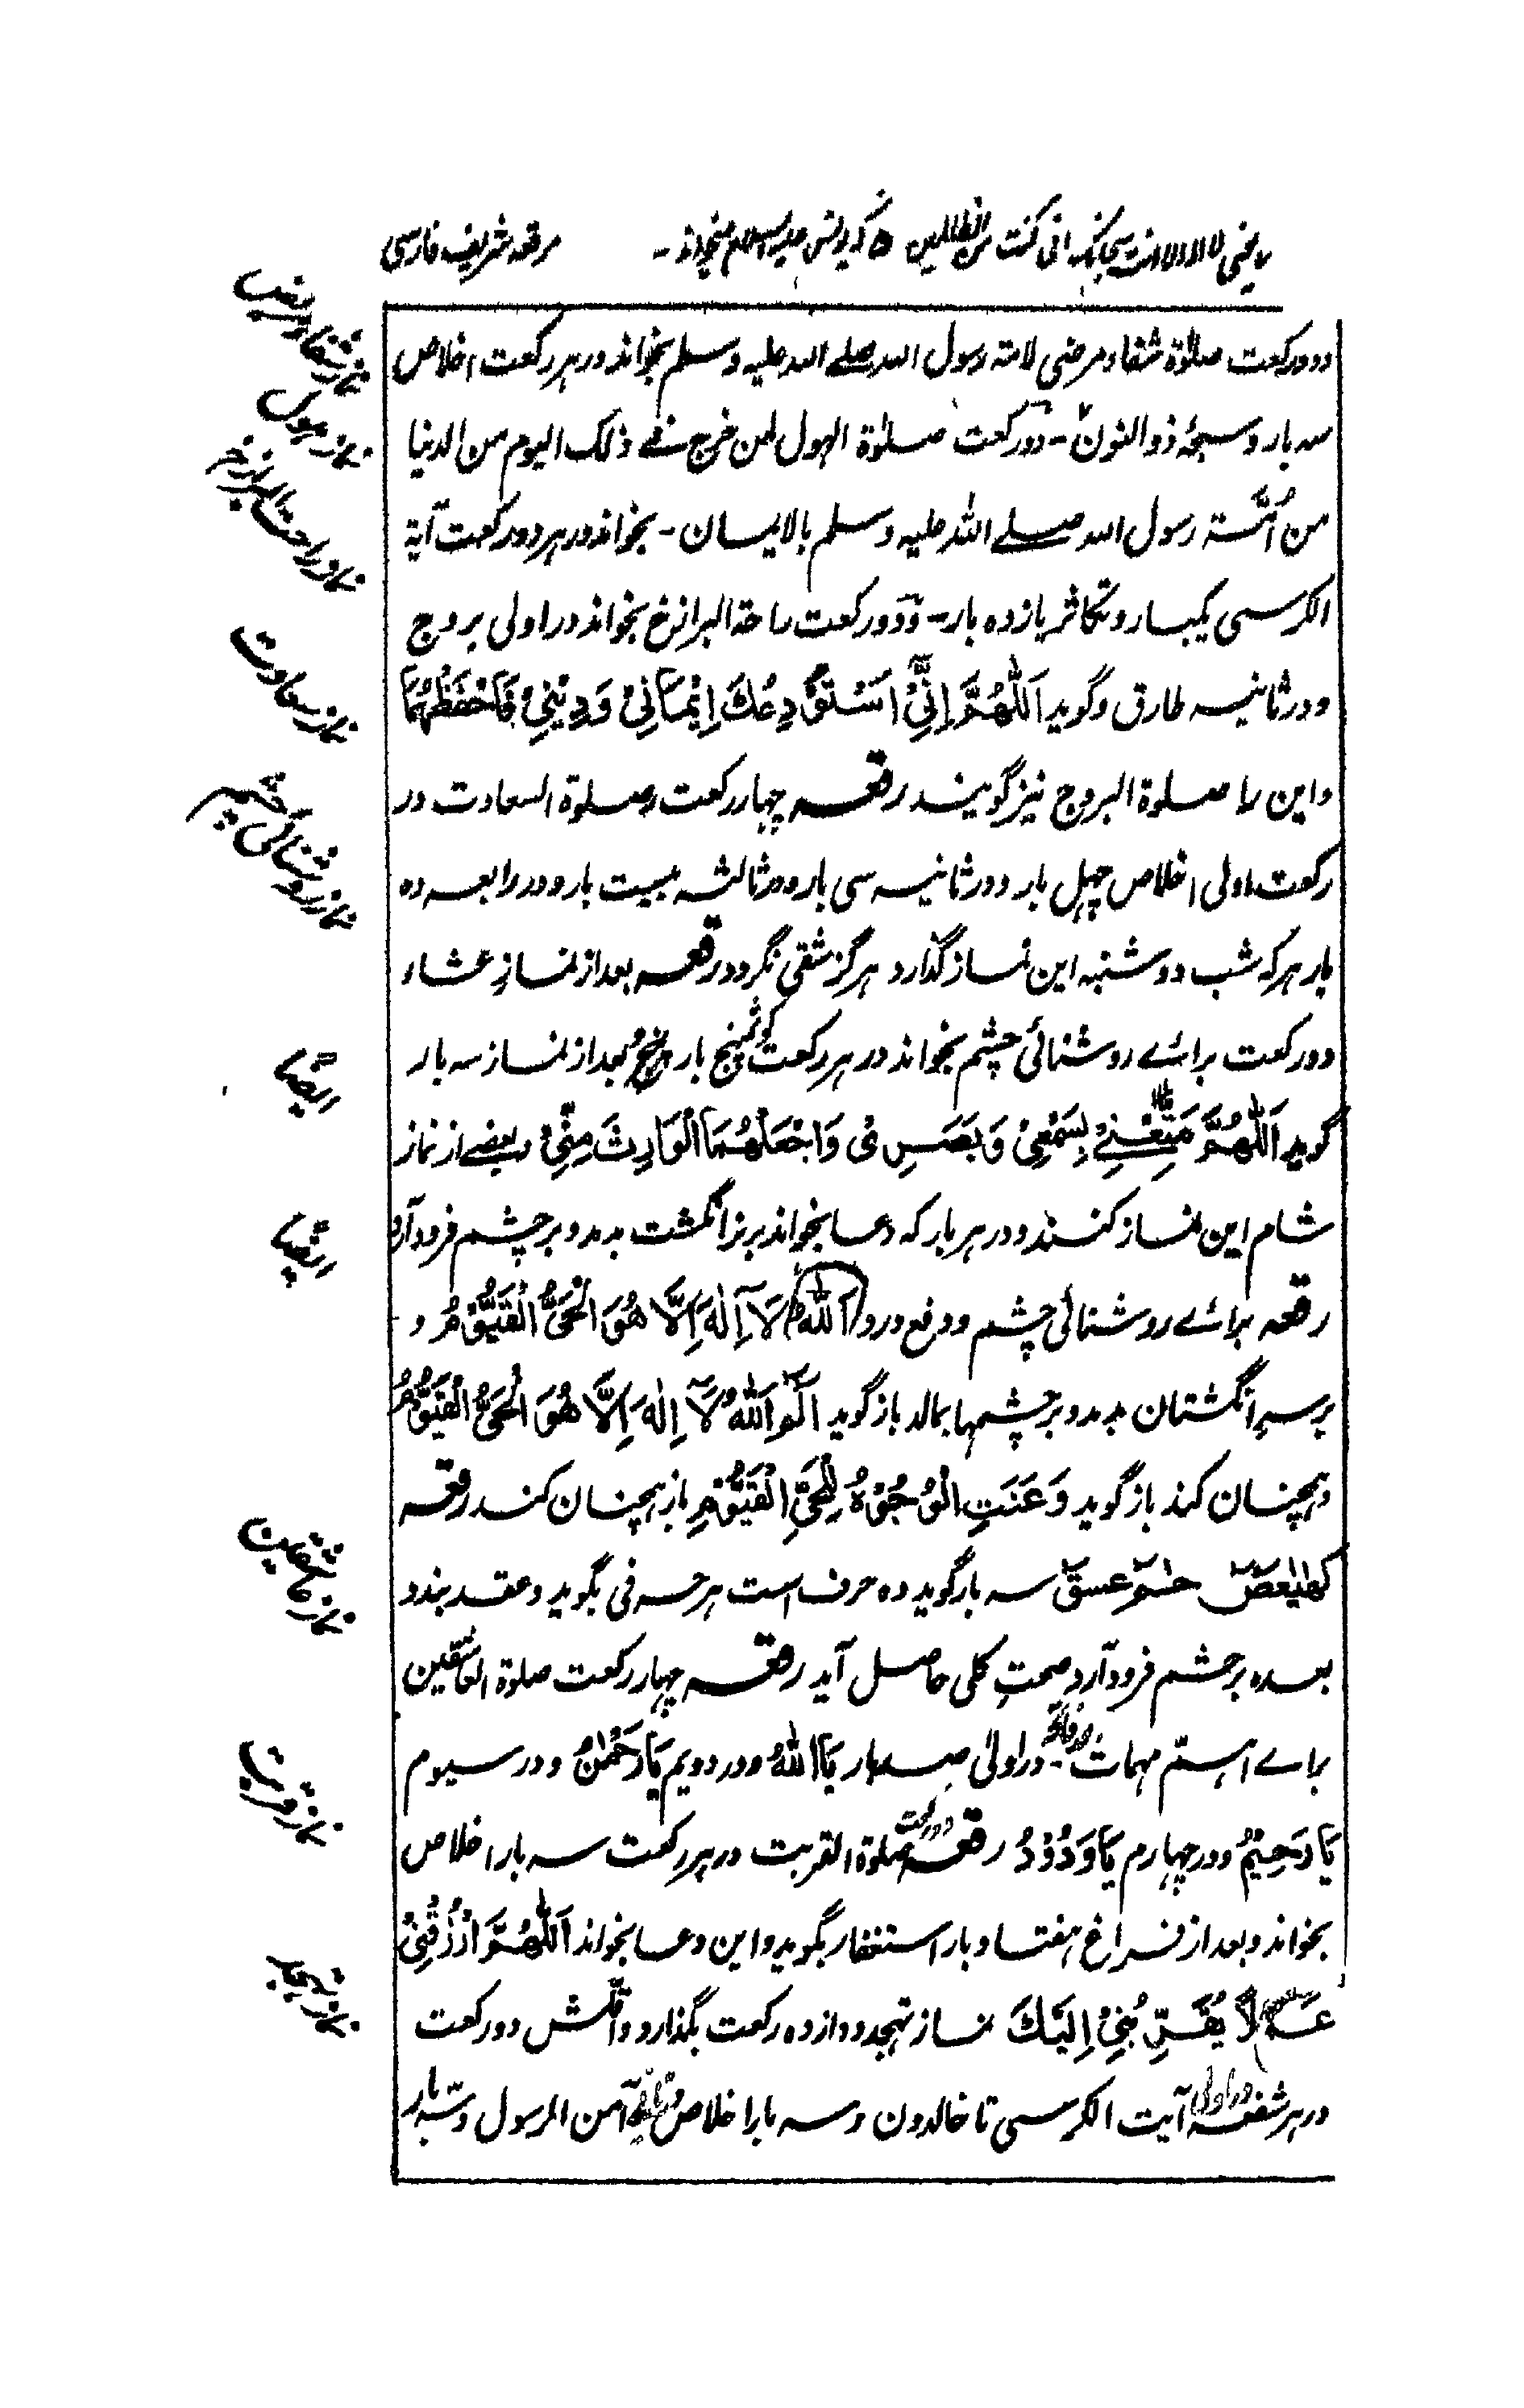 لا اله الا انت سبحانک انی کنت من الظالمین که یونس علیه السلام میخواند - مرقعه شریف فارسی
ودو رکعت صلوٰة شفاء مرضی لامة رسول الله صلے الله علیه وسلم بخواند در هر رکعت اخلاص
سه بار و سبحهٔ ذوالنون - دو رکعت صلوٰة الهول لمن خرج فے ذلک الیوم من الدنیا
من اُمّة رسول الله صلے الله علیه وسلم بالایمان - بخواند در هر دو رکعت آیة
الکرسی یکبار و تکاثر یازده بار - و دو رکعت راحة البرازخ بخواند در اولی بروج
و در ثانیه طارق و گوید اَللّٰهُمَّ اِنِّیْ اَسْتَوْدِعُكَ اِیْمَانِیْ وَدِیْنِیْ فَاحْفَظْهُمَا
واین را صلوة البروج نیز گویند رقعه چهار رکعت صلوة السعادت در
رکعت اولی اخلاص چهل بار و در ثانیه سی بار و در ثالثه بیست بار و در رابعه ده
بار هر که شب دوشنبه این نماز گذارد هرگز شقی نگردد رقعه بعد از نمازِ عشاء
دو رکعت برائے روشنائی چشم بخواند در هر رکعت کوثر پنج بار بعد از نماز سه بار
گوید اَللّٰهُمَّ مَتِّعْنِیْ بِسَمْعِیْ وَبَصَرِیْ وَاجْعَلْهُمَا الْوَارِثَ مِنِّیْ بعضے از نماز
شام این نماز کنند و در هر بار که دعا بخواند بر نر انگشت بدمد و بر چشم فرود آرد
رقعه برائے روشنائی چشم و دفع درد اَللّٰهُ لَآ اِلٰهَ اِلَّا هُوَ الْحَیُّ الْقَیُّوْمُ و
بر سرِ انگشتان بدمد و بر چشمها بمالد باز گوید الٓمّٓ اَللّٰهُ لَآ اِلٰهَ اِلَّا هُوَ الْحَیُّ الْقَیُّوْمُ
و همچنان کند باز گوید وَعَنَتِ الْوُجُوْهُ لِلْحَیِّ الْقَیُّوْمِ باز همچنان کند رقعه
کٓهٰیٰعٓصٓ حٰمٓ عٓسٓقٓ سه بار گوید ده حرف است هر حرفی بگوید و عقد بندد
بعده بر چشم فرود آرد صحتِ کلی حاصل آید رقعه چهار رکعت صلوة العاشقین
براے اهتم مهمات در اولیٰ صد بار یَا اَللّٰهُ و در دویم یَا رَحْمٰنُ و در سیوم
یَا رَحِیْمُ و در چهارم یَا وَدُوْدُ رقعه دو رکعت صلوة القربت در هر رکعت سه بار اخلاص
بخواند و بعد از فراغ هفتاد بار استغفار بگوید و این دعا بخواند اَللّٰهُمَّ ارْزُقْنِیْ
عَمَلًا یُقَرِّبُنِیْ اِلَیْكَ نماز تهجد دوازده رکعت بگذارد و اقلش دو رکعت
در هر شفعه در اولی آیت الکرسی تا خالدون و سه بار اخلاص آمن الرسول و سه بار
نماز شفاء مریض
نماز هول
نماز راحت البرازخ
نماز سعادت
نماز روشنائی چشم
ایضاً
ایضاً
نماز عاشقین
نماز قربت
نماز تهجد